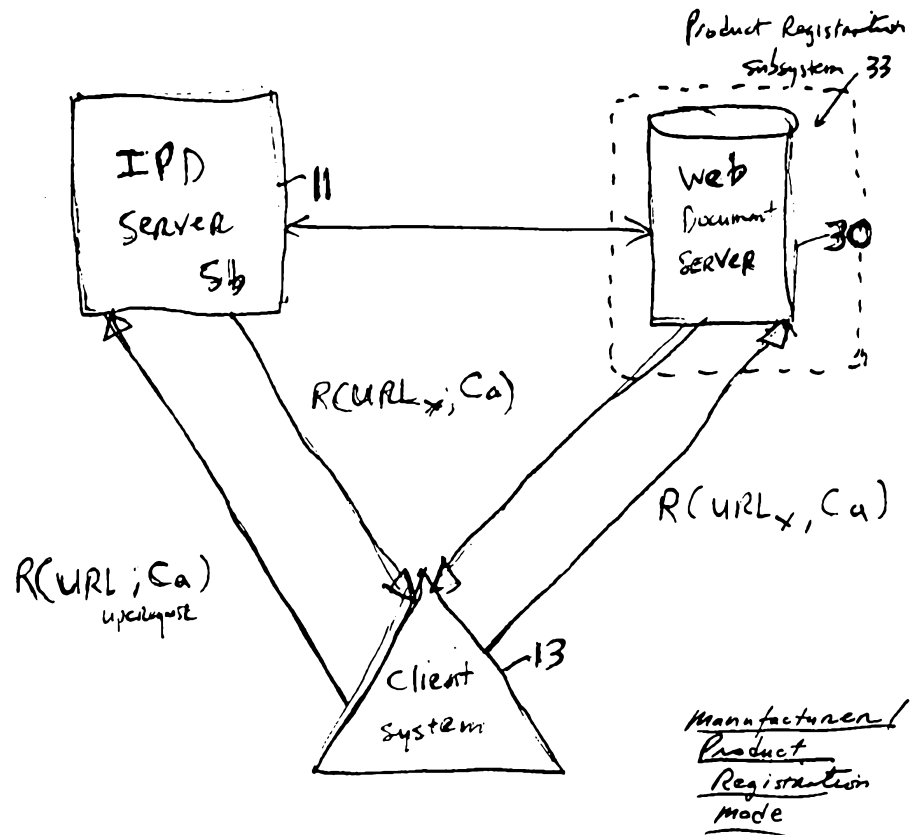 Product Registration
subsystem 33
IPD
Server
Sb
11
Web
Document
Server
30
R(URLx; Ca)
R(URLx, Ca)
R(URL ; Ca)
Client
system
13
Manufacturer/
Product
Registration
mode